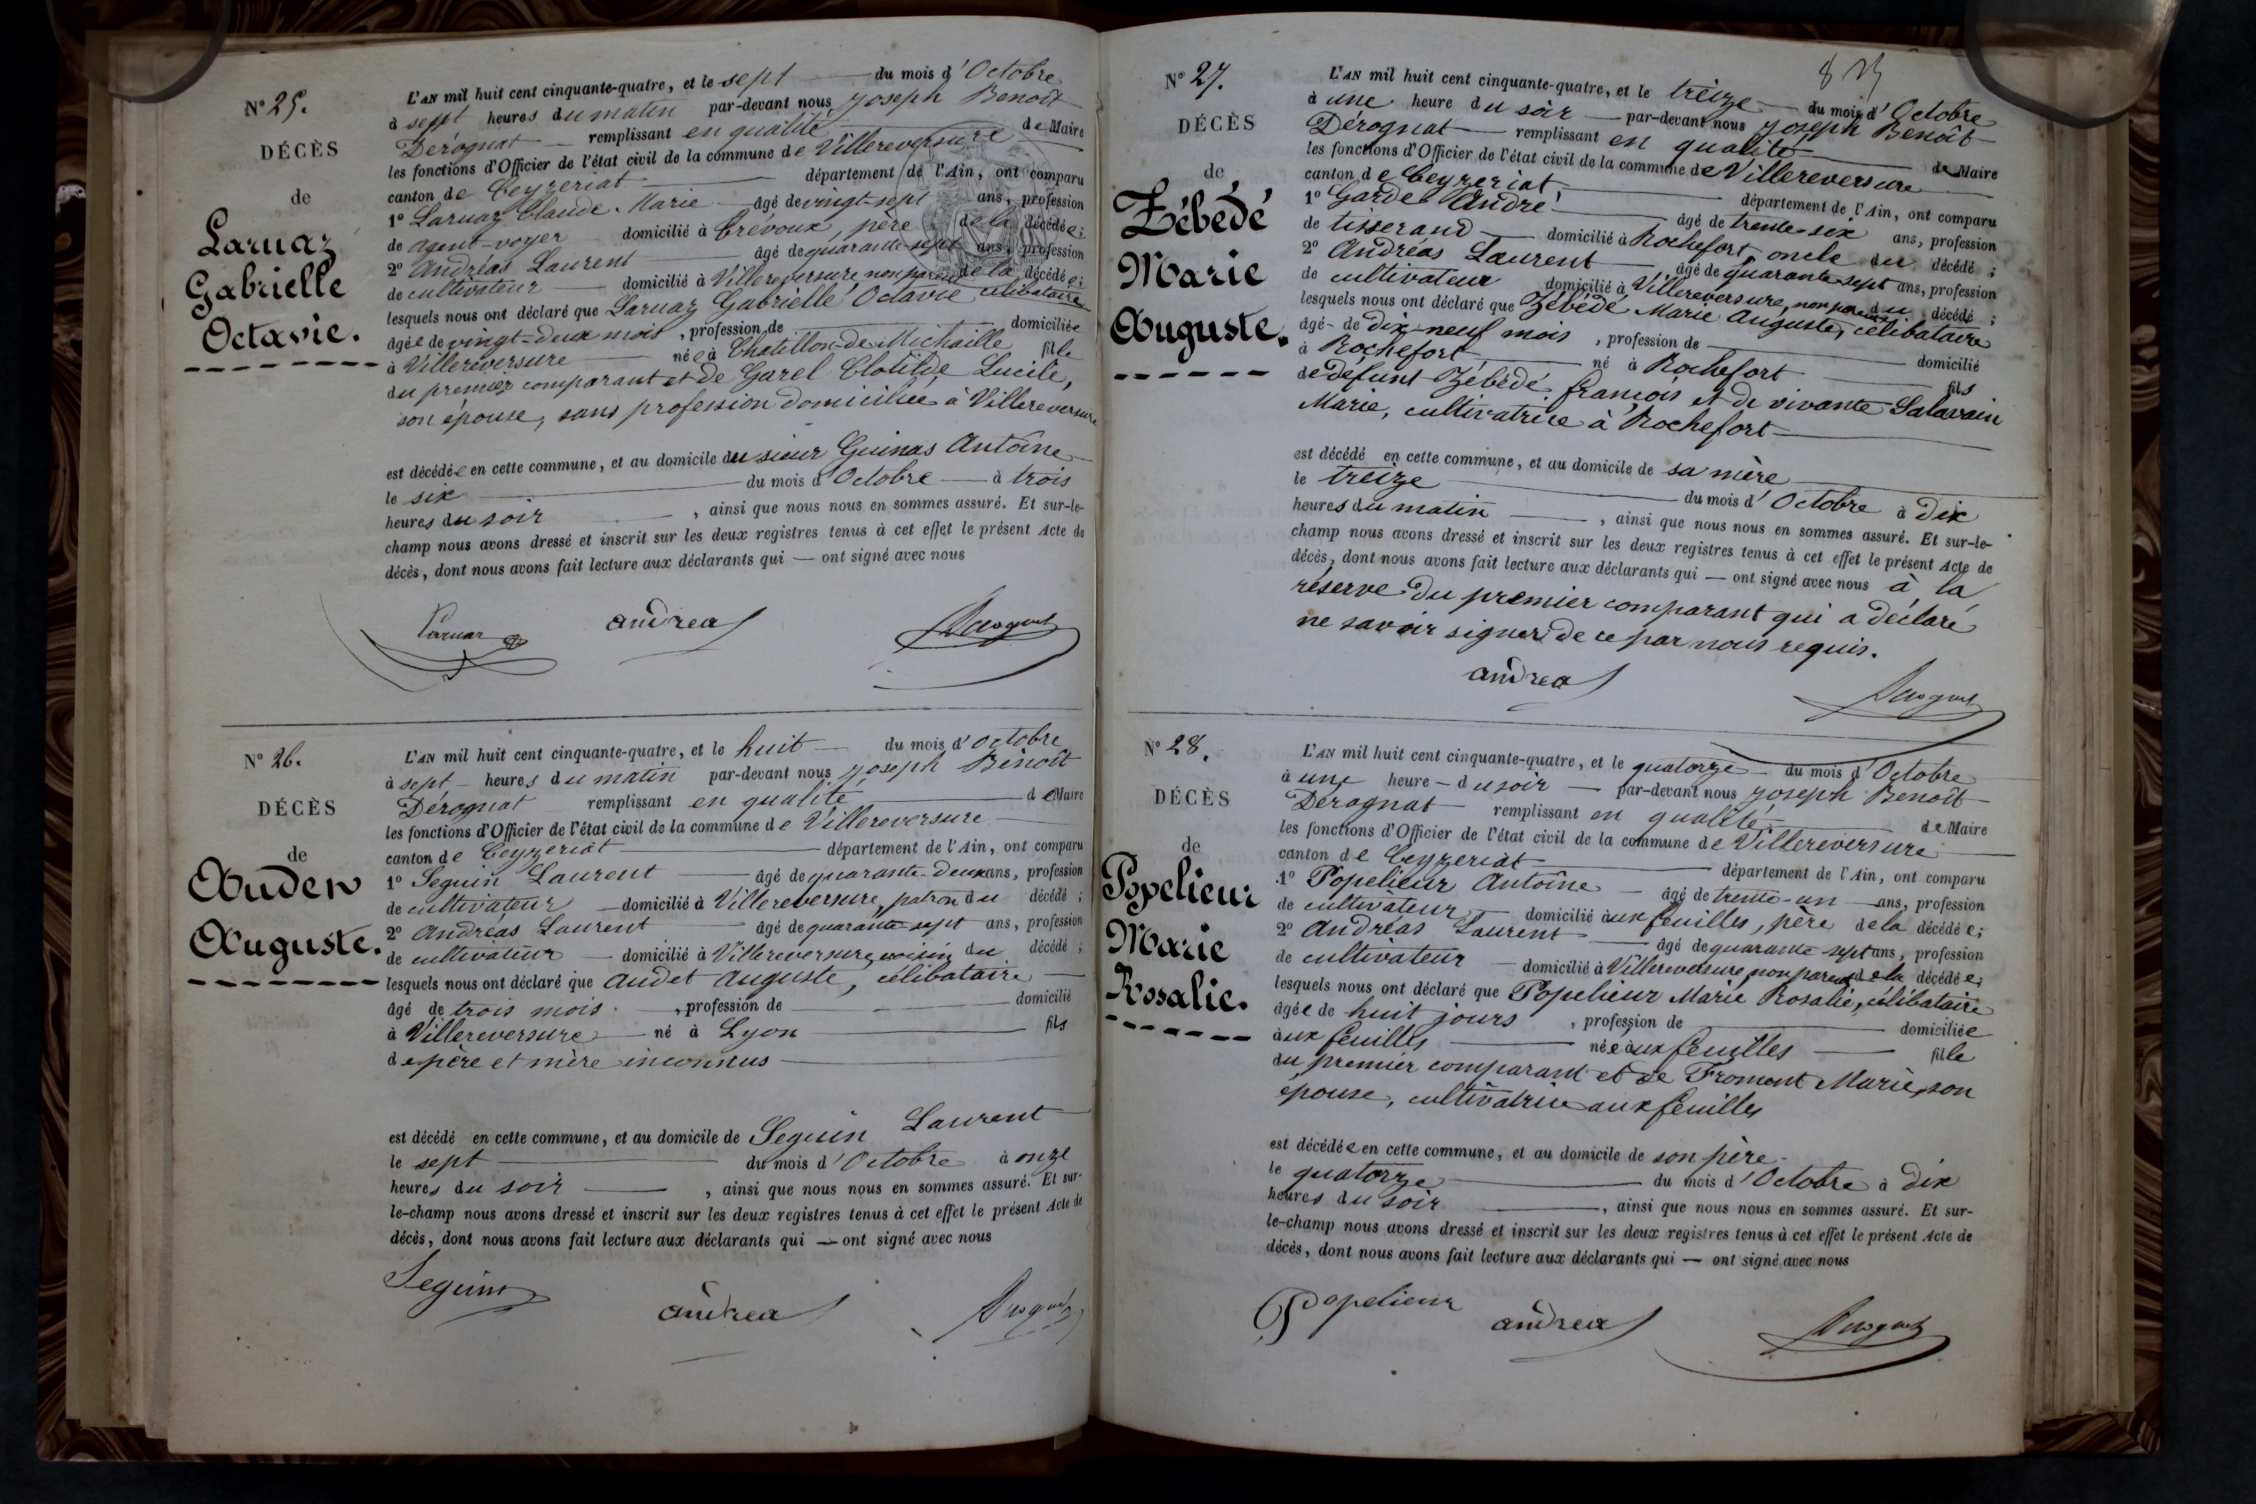 N° 25.
DÉCÈS
de
Laruaz
Gabrielle
Octavie.
L'AN mil huit cent cinquante-quatre, et le sept du mois d'Octobre
à sept heures du matin par-devant nous Joseph Benoît
Dérognat remplissant en qualité de Maire
les fonctions d'Officier de l'état civil de la commune de Villereversure
canton de Ceyzeriat département de l'Ain, ont comparu
1° Laruaz Claude-Marie âgé de vingt-sept ans, profession
de agent-voyer domicilié à Trévoux, père de la décédée;
2° Andréas Laurent âgé de quarante-sept ans, profession
de cultivateur domicilié à Villereversure, non parent de la décédée;
lesquels nous ont déclaré que Laruaz Gabrielle Octavie célibataire
âgée de vingt-deux mois, profession de domiciliée
à Villereversure née à Chatillon-de-Michaille fille
du premier comparant et de Garel Clotilde Lucile,
son épouse, sans profession domiciliée à Villereversure
est décédée en cette commune, et au domicile du sieur Guinas Antoine
le six du mois d'Octobre à trois
heures du soir, ainsi que nous nous en sommes assuré. Et sur-le-
champ nous avons dressé et inscrit sur les deux registres tenus à cet effet le présent Acte de
décès, dont nous avons fait lecture aux déclarants qui — ont signé avec nous
Laruaz andreas Dérognat
N° 26.
DÉCÈS
de
Audet
Auguste.
L'AN mil huit cent cinquante-quatre, et le huit du mois d'octobre
à sept heures du matin par-devant nous Joseph Benoît
Dérognat remplissant en qualité de Maire
les fonctions d'Officier de l'état civil de la commune de Villereversure
canton de Ceyzeriat département de l'Ain, ont comparu
1° Seguin Laurent âgé de quarante-deux ans, profession
de cultivateur domicilié à Villereversure, patron du décédé;
2° Andréas Laurent âgé de quarante-sept ans, profession
de cultivateur domicilié à Villereversure, voisin du décédé;
lesquels nous ont déclaré que Audet Auguste, célibataire
âgé de trois mois, profession de domicilié
à Villereversure né à Lyon fils
de père et mère inconnus
est décédé en cette commune, et au domicile de Seguin Laurent
le sept du mois d'Octobre à onze
heures du soir, ainsi que nous nous en sommes assuré. Et sur-
le-champ nous avons dressé et inscrit sur les deux registres tenus à cet effet le présent Acte de
décès, dont nous avons fait lecture aux déclarants qui — ont signé avec nous
Seguin andreas Dérognat
N° 27.
DÉCÈS
de
Zébédé
Marie
Auguste.
L'AN mil huit cent cinquante-quatre, et le treize du mois d'Octobre
à une heure du soir par-devant nous Joseph Benoît
Dérognat remplissant en qualité de Maire
les fonctions d'Officier de l'état civil de la commune de Villereversure
canton de Ceyzeriat, département de l'Ain, ont comparu
1° Garde André âgé de trente-six ans, profession
de tisserand domicilié à Rochefort, oncle du décédé;
2° Andréas Laurent âgé de quarante-sept ans, profession
de cultivateur domicilié à Villereversure, non parent du décédé;
lesquels nous ont déclaré que Zébédé Marie Auguste, célibataire
âgé de dix-neuf mois, profession de domicilié
à Rochefort, né à Rochefort fils
de défunt Zébédé François et de vivante Salavain
Marie, cultivatrice à Rochefort
est décédé en cette commune, et au domicile de sa mère
le treize du mois d'Octobre à dix
heures du matin, ainsi que nous nous en sommes assuré. Et sur-le-
champ nous avons dressé et inscrit sur les deux registres tenus à cet effet le présent Acte de
décès, dont nous avons fait lecture aux déclarants qui — ont signé avec nous à la
réserve du premier comparant qui a déclaré
ne savoir signer de ce par nous requis.
andreas Dérognat
N° 28.
DÉCÈS
de
Popelieur
Marie
Rosalie.
L'AN mil huit cent cinquante-quatre, et le quatorze du mois d'Octobre
à une heure du soir par-devant nous Joseph Benoît
Dérognat remplissant en qualité de Maire
les fonctions d'Officier de l'état civil de la commune de Villereversure
canton de Ceyzeriat département de l'Ain, ont comparu
1° Popelieur Antoine âgé de trente-un ans, profession
de cultivateur domicilié aux feuilles, père de la décédée;
2° Andréas Laurent âgé de quarante-sept ans, profession
de cultivateur domicilié à Villereversure, non parent de la décédée;
lesquels nous ont déclaré que Popelieur Marie Rosalie, célibataire
âgée de huit jours, profession de domiciliée
aux feuilles née aux feuilles fille
du premier comparant et de Fromont Marie, son
épouse, cultivatrice aux feuilles
est décédée en cette commune, et au domicile de son père
le quatorze du mois d'Octobre à dix
heures du soir, ainsi que nous nous en sommes assuré. Et sur-
le-champ nous avons dressé et inscrit sur les deux registres tenus à cet effet le présent Acte de
décès, dont nous avons fait lecture aux déclarants qui — ont signé avec nous
Popelieur andreas Dérognat